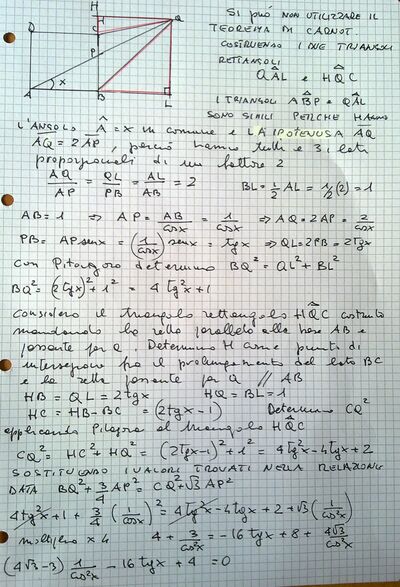 H
D
C
Q
P
x
A
B
L
SI PUÓ NON UTILIZZARE IL
TEOREMA DI CARNOT.
COSTRUENDO I DUE TRIANGOLI
RETTANGOLI
QÂL e HQ̂C
I TRIANGOLI AB̂P e QÂL
SONO SIMILI PERCHÉ HANNO
L'ANGOLO Â = x in comune e LA IPOTENUSA AQ
AQ = 2AP, perciò hanno tutti e 3 i lati
proporzionali di un fattore 2
AQ/AP = QL/PB = AL/AB = 2    BL = 1/2 AL = 1/2 (2) = 1
AB = 1 ⇒ AP = AB/cosx = 1/cosx ⇒ AQ = 2AP = 2/cosx
PB = AP senx = (1/cosx) senx = tgx ⇒ QL = 2PB = 2tgx
con Pitagora determino BQ² = QL² + BL²
BQ² = (2tgx)² + 1² = 4tg²x + 1
Considero il triangolo rettangolo HQ̂C costruito
mandando la retta parallela alla base AB e
passante per Q. Determino H come punto di
intersezione fra il prolungamento del lato BC
e la retta passante per Q // AB
HB = QL = 2tgx    HQ = BL = 1
HC = HB - BC = (2tgx - 1)    Determino CQ²
applicando Pitagora al triangolo HQ̂C
CQ² = HC² + HQ² = (2tgx - 1)² + 1² = 4tg²x - 4tgx + 2
SOSTITUENDO I VALORI TROVATI NELLA RELAZIONE
DATA BQ² + 3/4 AP² = CQ² + √3 AP²
4tg²x + 1 + 3/4 (1/cosx)² = 4tg²x - 4tgx + 2 + √3 (1/cos²x)
multiplico x 4    4 + 3/cos²x = -16tgx + 8 + 4√3/cos²x
(4√3 - 3) 1/cos²x - 16tgx + 4 = 0